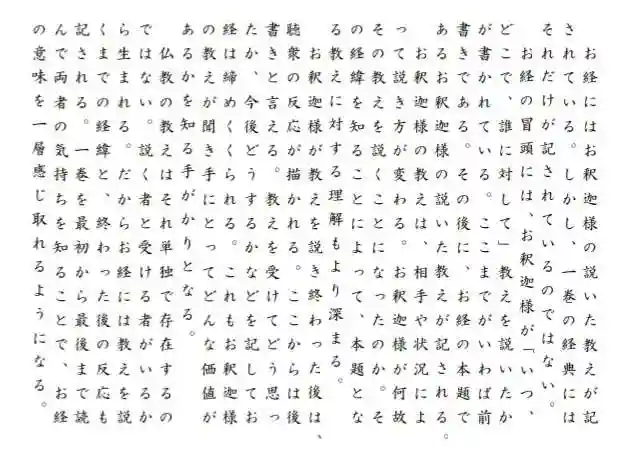 お経にはお釈迦様の説いた教えが記
されている。しかし、一巻の経典には
それだけが記されているのではない。
お経の冒頭には、お釈迦様が「いつ、
どこで、誰に対して」教えを説いたか
が書かれている。ここまでがいわば前
書きである。その後に、お経の本題で
あるお釈迦様の説いた教えが記される。
お釈迦様の教えは、相手や状況によ
って説き方が変わる。お釈迦様が何故
その教えを説くことになったのか。そ
の経緯を知ることによって、本題とな
る教えに対する理解もより深まる。
お釈迦様が教えを説き終わった後は、
聴衆の反応が描かれる。ここからは後
書きと言える。教えを受けてどう思っ
たか、今後どうするかなどを記してお
経は締めくくられる。これもお釈迦様
の教えが聞き手にとってどんな価値が
あるかを知る手がかりとなる。
仏教の教えはそれ単独で存在するの
ではない。説く者と受ける者がいるか
ら生まれる。だからお経には教えを説
くまでの経緯と、終わった後の反応も
記される。一巻を最初から最後まで読
んで両者の気持ちを知ることで、お経
の意味を一層感じ取れるようになる。